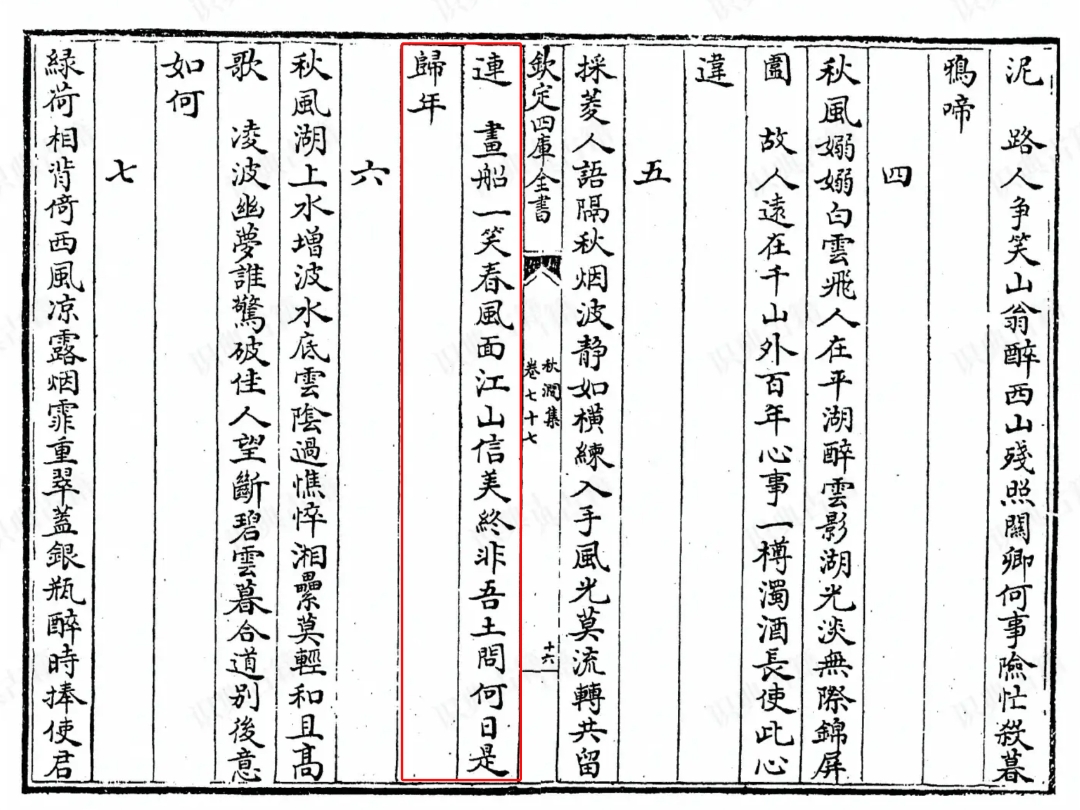 泥　路人争笑山翁醉西山殘照關卿何事險忙殺暮
鴉啼
四
秋風嫋嫋白雲飛人在平湖醉雲影湖光淡無際錦屏
圍　故人遠在千山外百年心事一樽濁酒長使此心
違
五
採菱人語隔秋烟波静如橫練入手風光莫流轉共留
欽定四庫全書
秋澗集
卷七十七
十六
連　畫船一笑春風面江山信美終非吾土問何日是
歸年
六
秋風湖上水增波水底雲陰過憔悴湘纍莫輕和且高
歌　凌波幽夢誰驚破佳人望斷碧雲暮合道别後意
如何
七
緑荷相背倚西風凉露烟霏重翠蓋銀瓶醉時捧使君